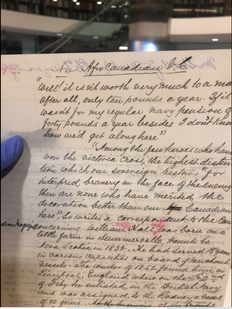 An Afro Canadian V.C.
"Well! it is n't worth very much to a man
after all, only ten pounds a year. If it
wasn't for my regular navy pension of
forty pounds a year besides I don't know
how we'd get along here."
"Among the few heroes who have
won the Victoria Cross, the highest distinc
tion which our Sovereign bestows for
intrepid bravery in the face of the enemy
there are none who have merited the
decoration better than our Canadian
hero" so writes a correspondent to the
concerning William Hall was born on a
little farm in Summerville, Hants Co.
Nova Scotia in 1831. He had served
in various capacities on board of merchant
vessels. The winter of 1852 found him in
Liverpool, England where on the
of Feby he enlisted in the British Navy
and was assigned to the Rodney, a vessel
of 90 guns.